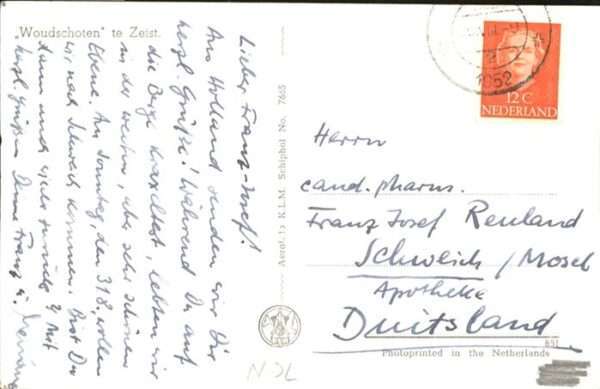 "Woudschoten" te Zeist.
Lieber Franz-Josef!
Aus Holland senden wir Dir
herzl. Grüße! Während Du auf
die Berge kraxeltest, lebten wir
in der weiten, aber sehr schönen
Ebene. Am Sonntag, den 31.8. wollen
wir nach Schweich kommen. Bist Du
dann auch
herzl. Grüßen Deine Franz u.
Aerof. its K.L.M. Schiphol No. 7665
1952
12 C
NEDERLAND
Herrn
cand. pharm.
Franz Josef Reuland
Schweich / Mosel
Apotheke
Duitsland
851
Photoprinted in the Netherlands
NDL